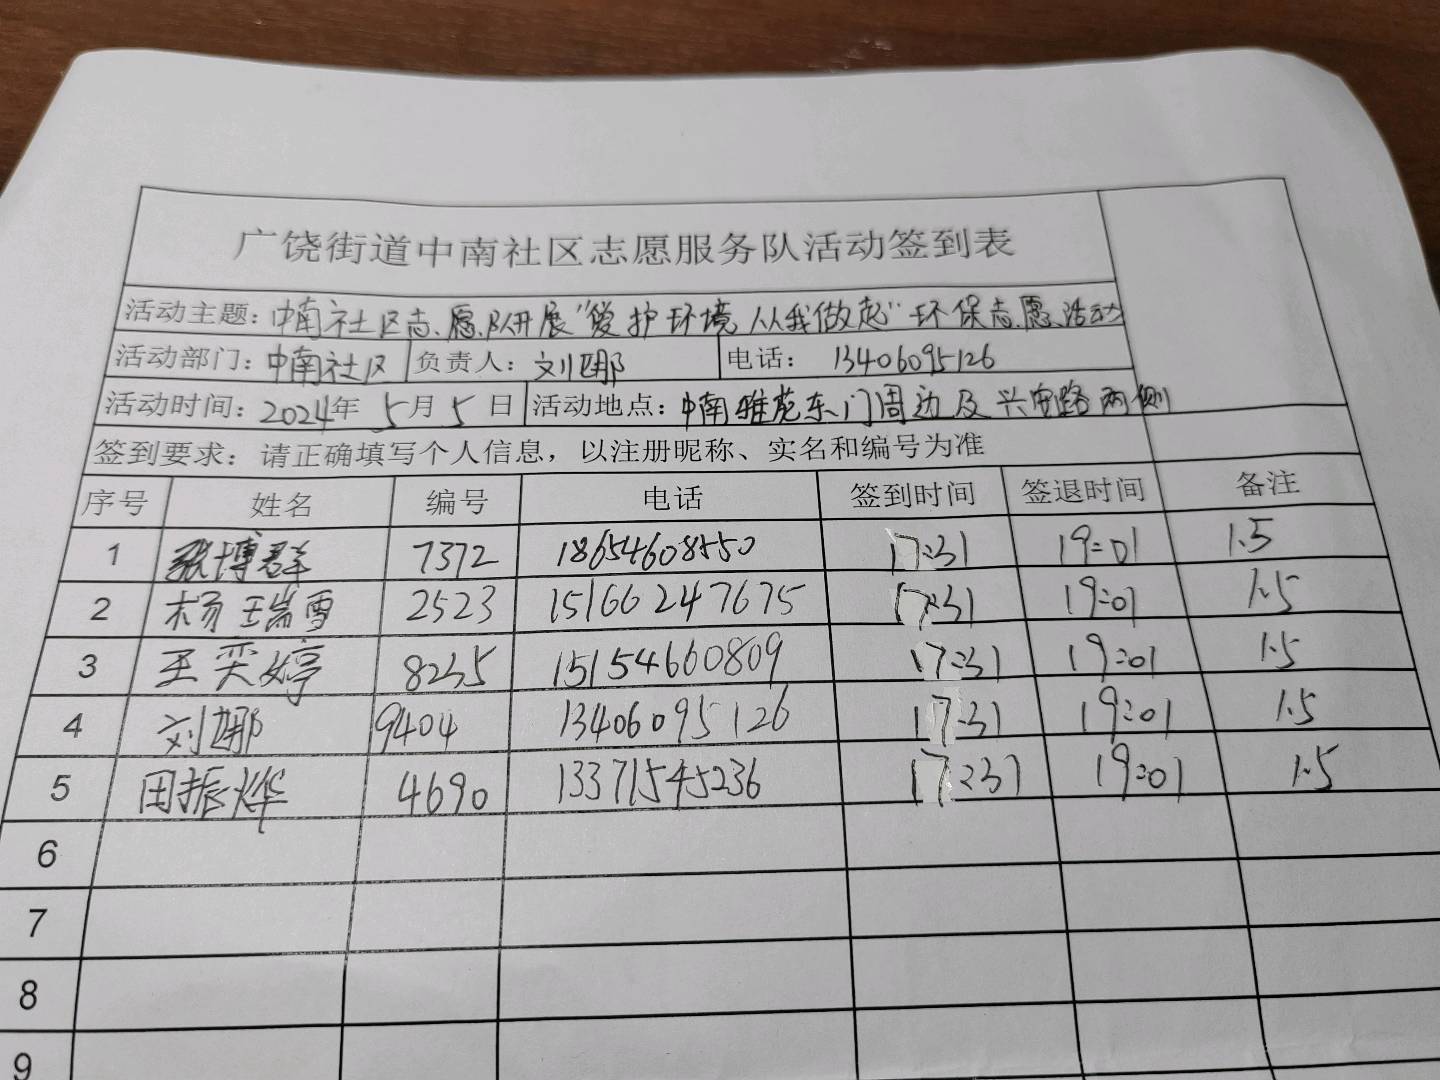 广饶街道中南社区志愿服务队活动签到表
活动主题：中南社区志愿队开展“爱护环境 从我做起”环保志愿活动
活动部门：中南社区 负责人：刘娜 电话：13406095126
活动时间：2024年5月5日 活动地点：中南雅苑东门周边及兴安路两侧
签到要求：请正确填写个人信息，以注册昵称、实名和编号为准
序号 姓名 编号 电话 签到时间 签退时间 备注
1 张博群 7372 18654608550 17:31 19:01 1.5
2 杨瑞雪 2523 15166247675 17:31 19:01 1.5
3 王奕婷 8235 15154660809 17:31 19:01 1.5
4 刘娜 9404 13406095126 17:31 19:01 1.5
5 田振烨 4690 13371545236 17:31 19:01 1.5
6
7
8
9